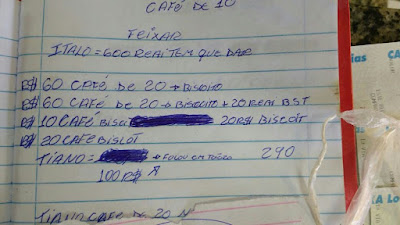 CAFÉ DE 10
FEIXAR
ITALO = 600 REAI TEM QUE DAR
R$ 60 CAFÉ DE 20 + BISCOITO
R$ 60 CAFÉ DE 20 → BISCOITO + 20 REAI BST
R$ 10 CAFÉ BISCOI 20R$ BISCOIT
R$ 20 CAFE BISCOT
TIANO = 290
100 R$
TIANO CAFE DE 20